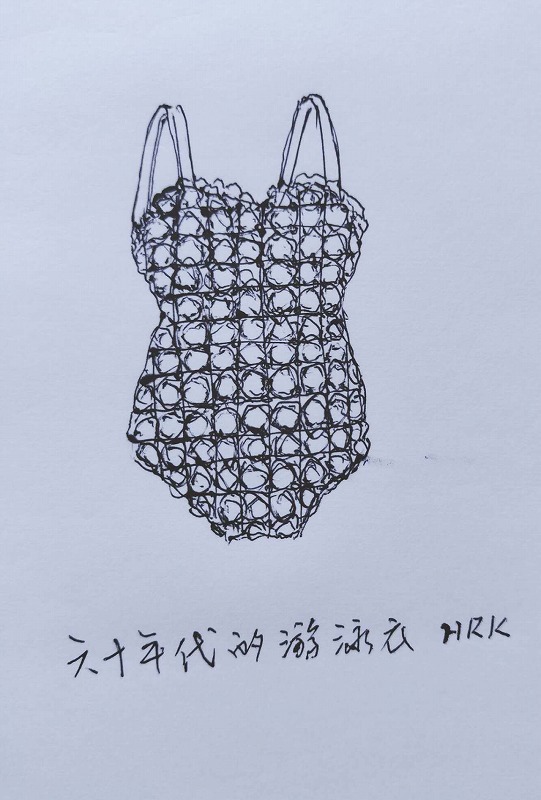 六十年代的游泳衣 HRK